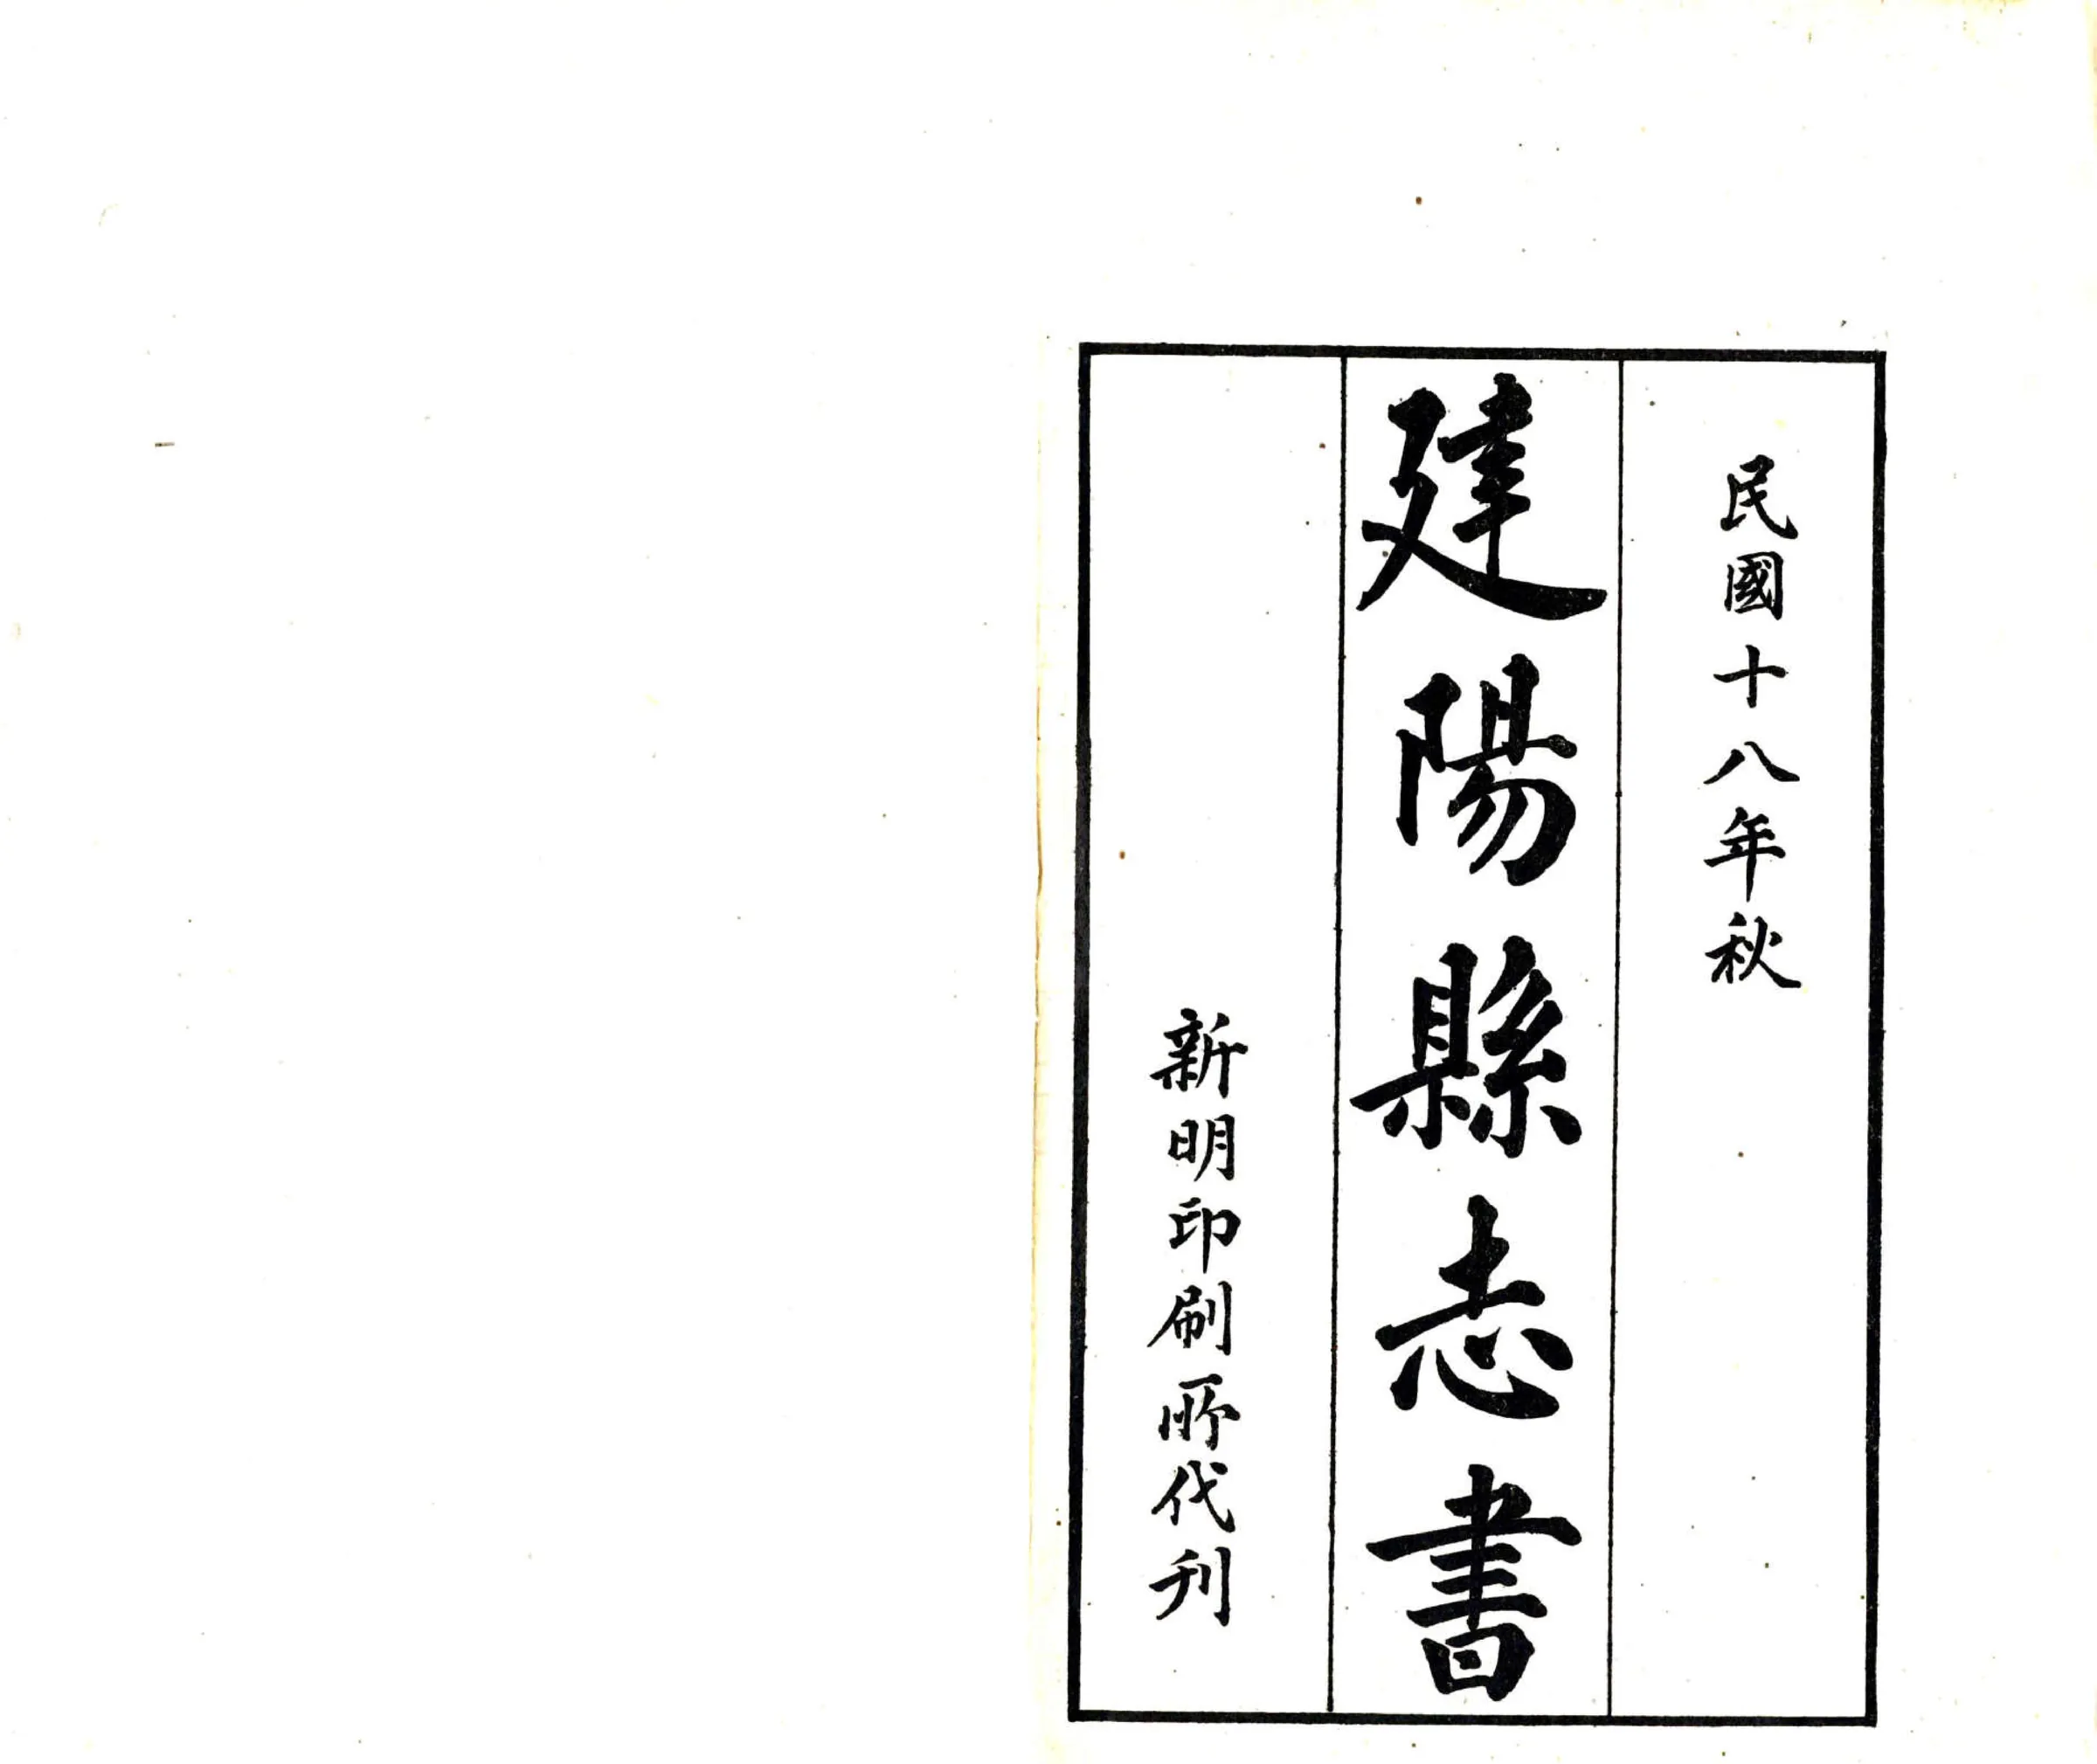 民國十八年秋
建陽縣志書
新明印刷所代刊